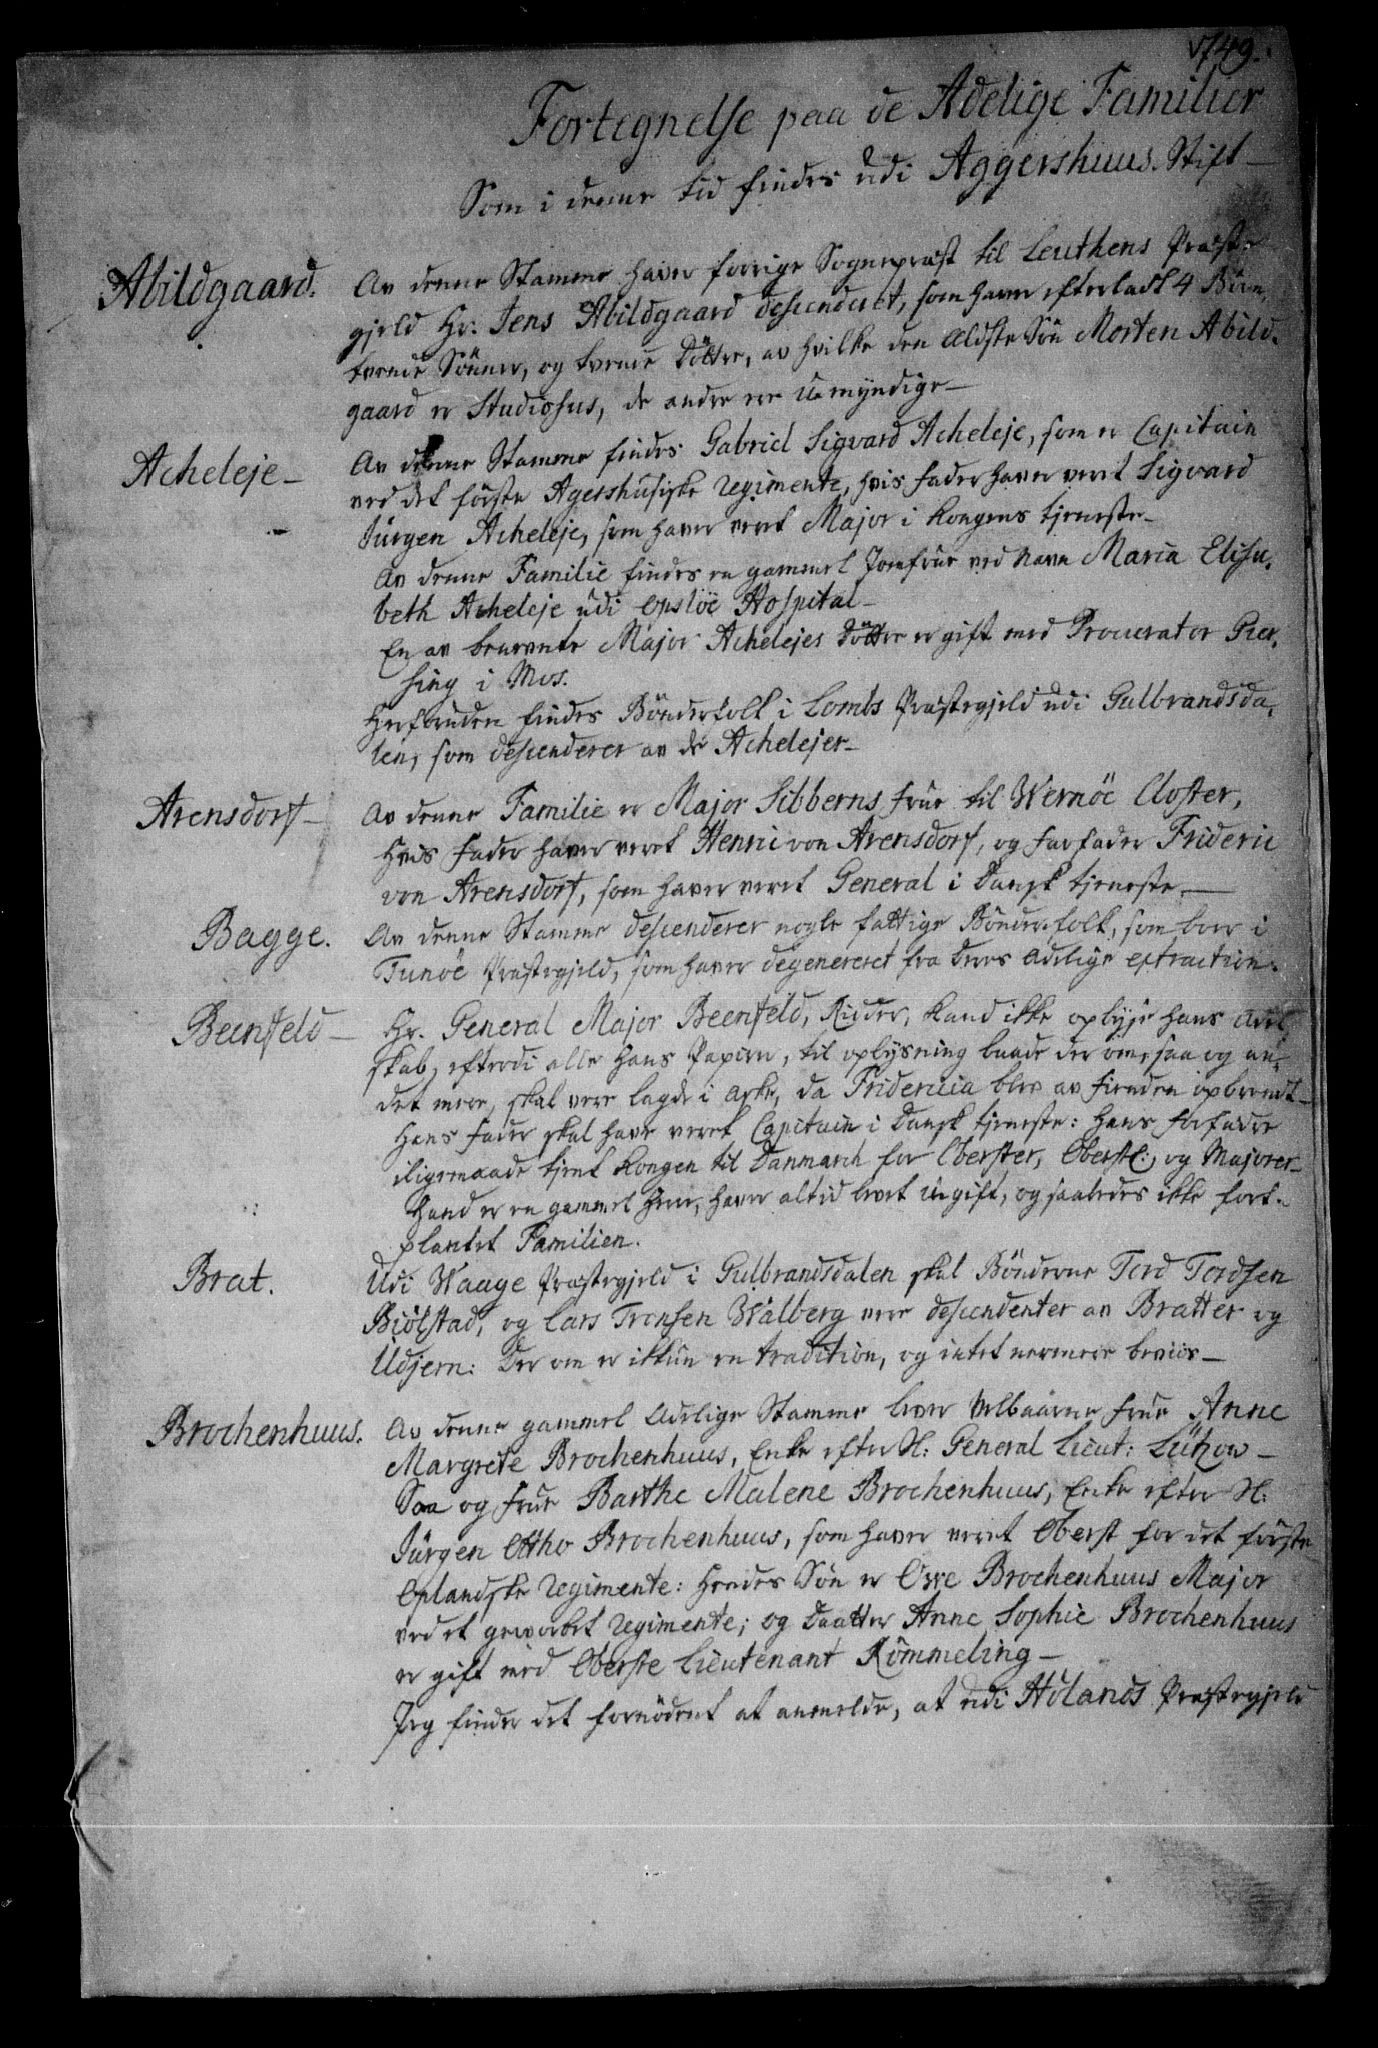 1749.
Fortegnelse paa de Adelige Familier
Som i denne tid findes udi Aggershuus Stift
Abildgaard. Av denne Stamme haver forrige Sognepræst til Leuthens Præste-
gjeld Hr: Jens Abildgaard descenderet, som haver efterladt 4 Börn,
tvende Sönner, og tvende Döttre, av hvilke den ældste Sön Morten Abild-
gaard er Studiosus, de andre ere Umyndige-
Acheleje- Av denne Stamme findes Gabriel Sigvard Acheleje, som er Capitain
ved det förste Agershusiske Regimente, hvis fader haver veret Sigvard
Jürgen Acheleje, som haver veret Major i Kongens tjeneste-
Av denne Familie findes en gammel Jomfrue ved Navn Maria Elisa-
beth Acheleje udi Opslöe Hospital-
En av benevnte Major Achelejes Döttre er gift med Procurator Pier-
sing i Mos.
Herforuden findes Bönderfolk i Lombs Præstegjeld udi Gulbrandsda-
len, som descenderer av de Achelejer-
Arensdorf- Av denne Familie er Major Sibberns frue til Wernöe Closter,
Hvis fader haver veret Henric von Arensdorf, og farfader Frideric
von Arensdorf, som haver veret General i Dansk tjeneste.-
Bagge. Av denne Stamme descenderer nogle fattige Bönderfolk, som boer i
Tunöe Præstegjeld, som haver degenereret fra deres adelige extraction.
Beenfeld- Hr. General Major Beenfeld, Ridder, kand ikke oplyse hans adel-
skab, efterdi alle hans Papirer, til oplysning baade der om, saa og an-
det mere, skal vere lagde i aske, da Fridericia blev av fienden opbrendt-
Hans fader skal have veret Capitain i Dansk tjeneste: hans forfædre
iligemaade tjent Kongen til Danmarch for Oberster, Oberstl:, og Majorer-
Hand er en gammel Herre, haver altid levet Ugift, og saaledes ikke fort-
plantet Familien.
Brat. Udi Waage Præstegjeld i Gulbrandsdalen skal Bönderne Tord Tordsen
Biölstad, og Lars Tronsen Walberg vere descendenter av Bratter og
Udjern: Der om er ikkun en tradition, og intet nermere beviis-
Brochenhuus. Av denne gammel Adelige Stamme lever Velbaarne frue Anne
Margrete Brochenhuus, Enke efter Sl: General Lieut: Lützow-
Saa og frue Barthe Malene Brochenhuus, Enke efter Sl:
Jürgen Ottho Brochenhuus, som haver veret Oberst for det förste
Oplandske Regimente: Hendes Sön er Owe Brochenhuus Major
ved et geworbet Regimente; og Daatter Anne Sophie Brochenhuus
er gift med Oberste Lieutenant Römmeling-
Jeg finder det fornödent at anmelde, at udi Hölands Præstegjeld